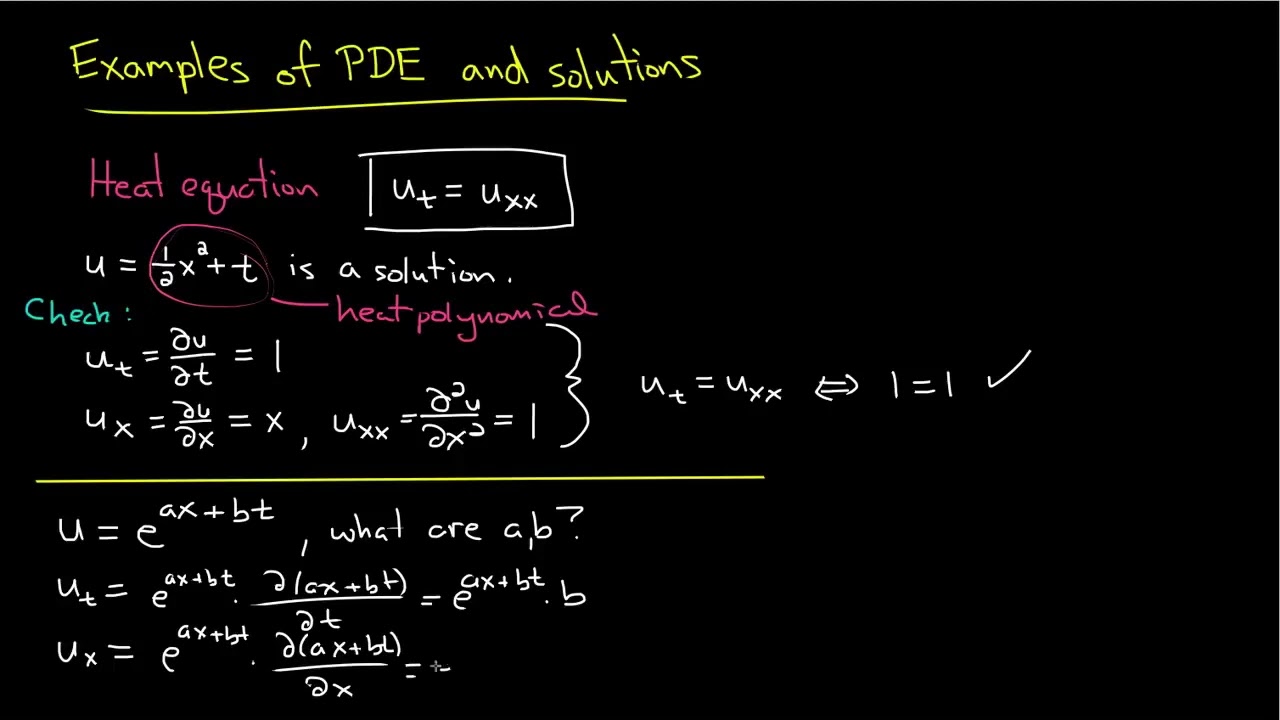 Examples of PDE and solutions
Heat equation u_t = u_xx
u = 1/2 x² + t is a solution.
Check: heat polynomical
u_t = ∂u/∂t = 1
u_t = u_xx ⇔ 1 = 1 ✓
u_x = ∂u/∂x = x, u_xx = ∂²u/∂x² = 1
u = e^(ax+bt), what are a,b?
u_t = e^(ax+bt) · ∂(ax+bt)/∂t = e^(ax+bt) · b
u_x = e^(ax+bt) · ∂(ax+bt)/∂x =